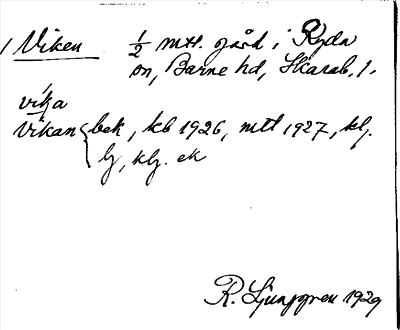 1 Viken ½ mtl. gård i Ryda
sn, Barne hd, Skarab. l.
vi´ka
vi´kan { bek, kb 1926, mtl 1927, klj.
lj, klj. ek
R. Ljunggren 1929